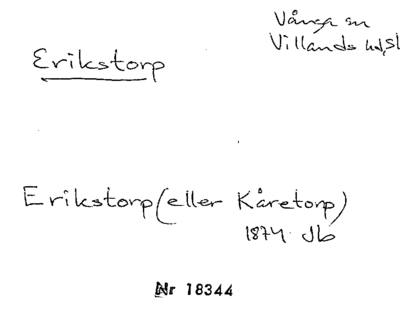 Vånga sn
Villands hd, sl
Erikstorp
Erikstorp (eller Kåretorp)
1874 Jb
Nr 18344